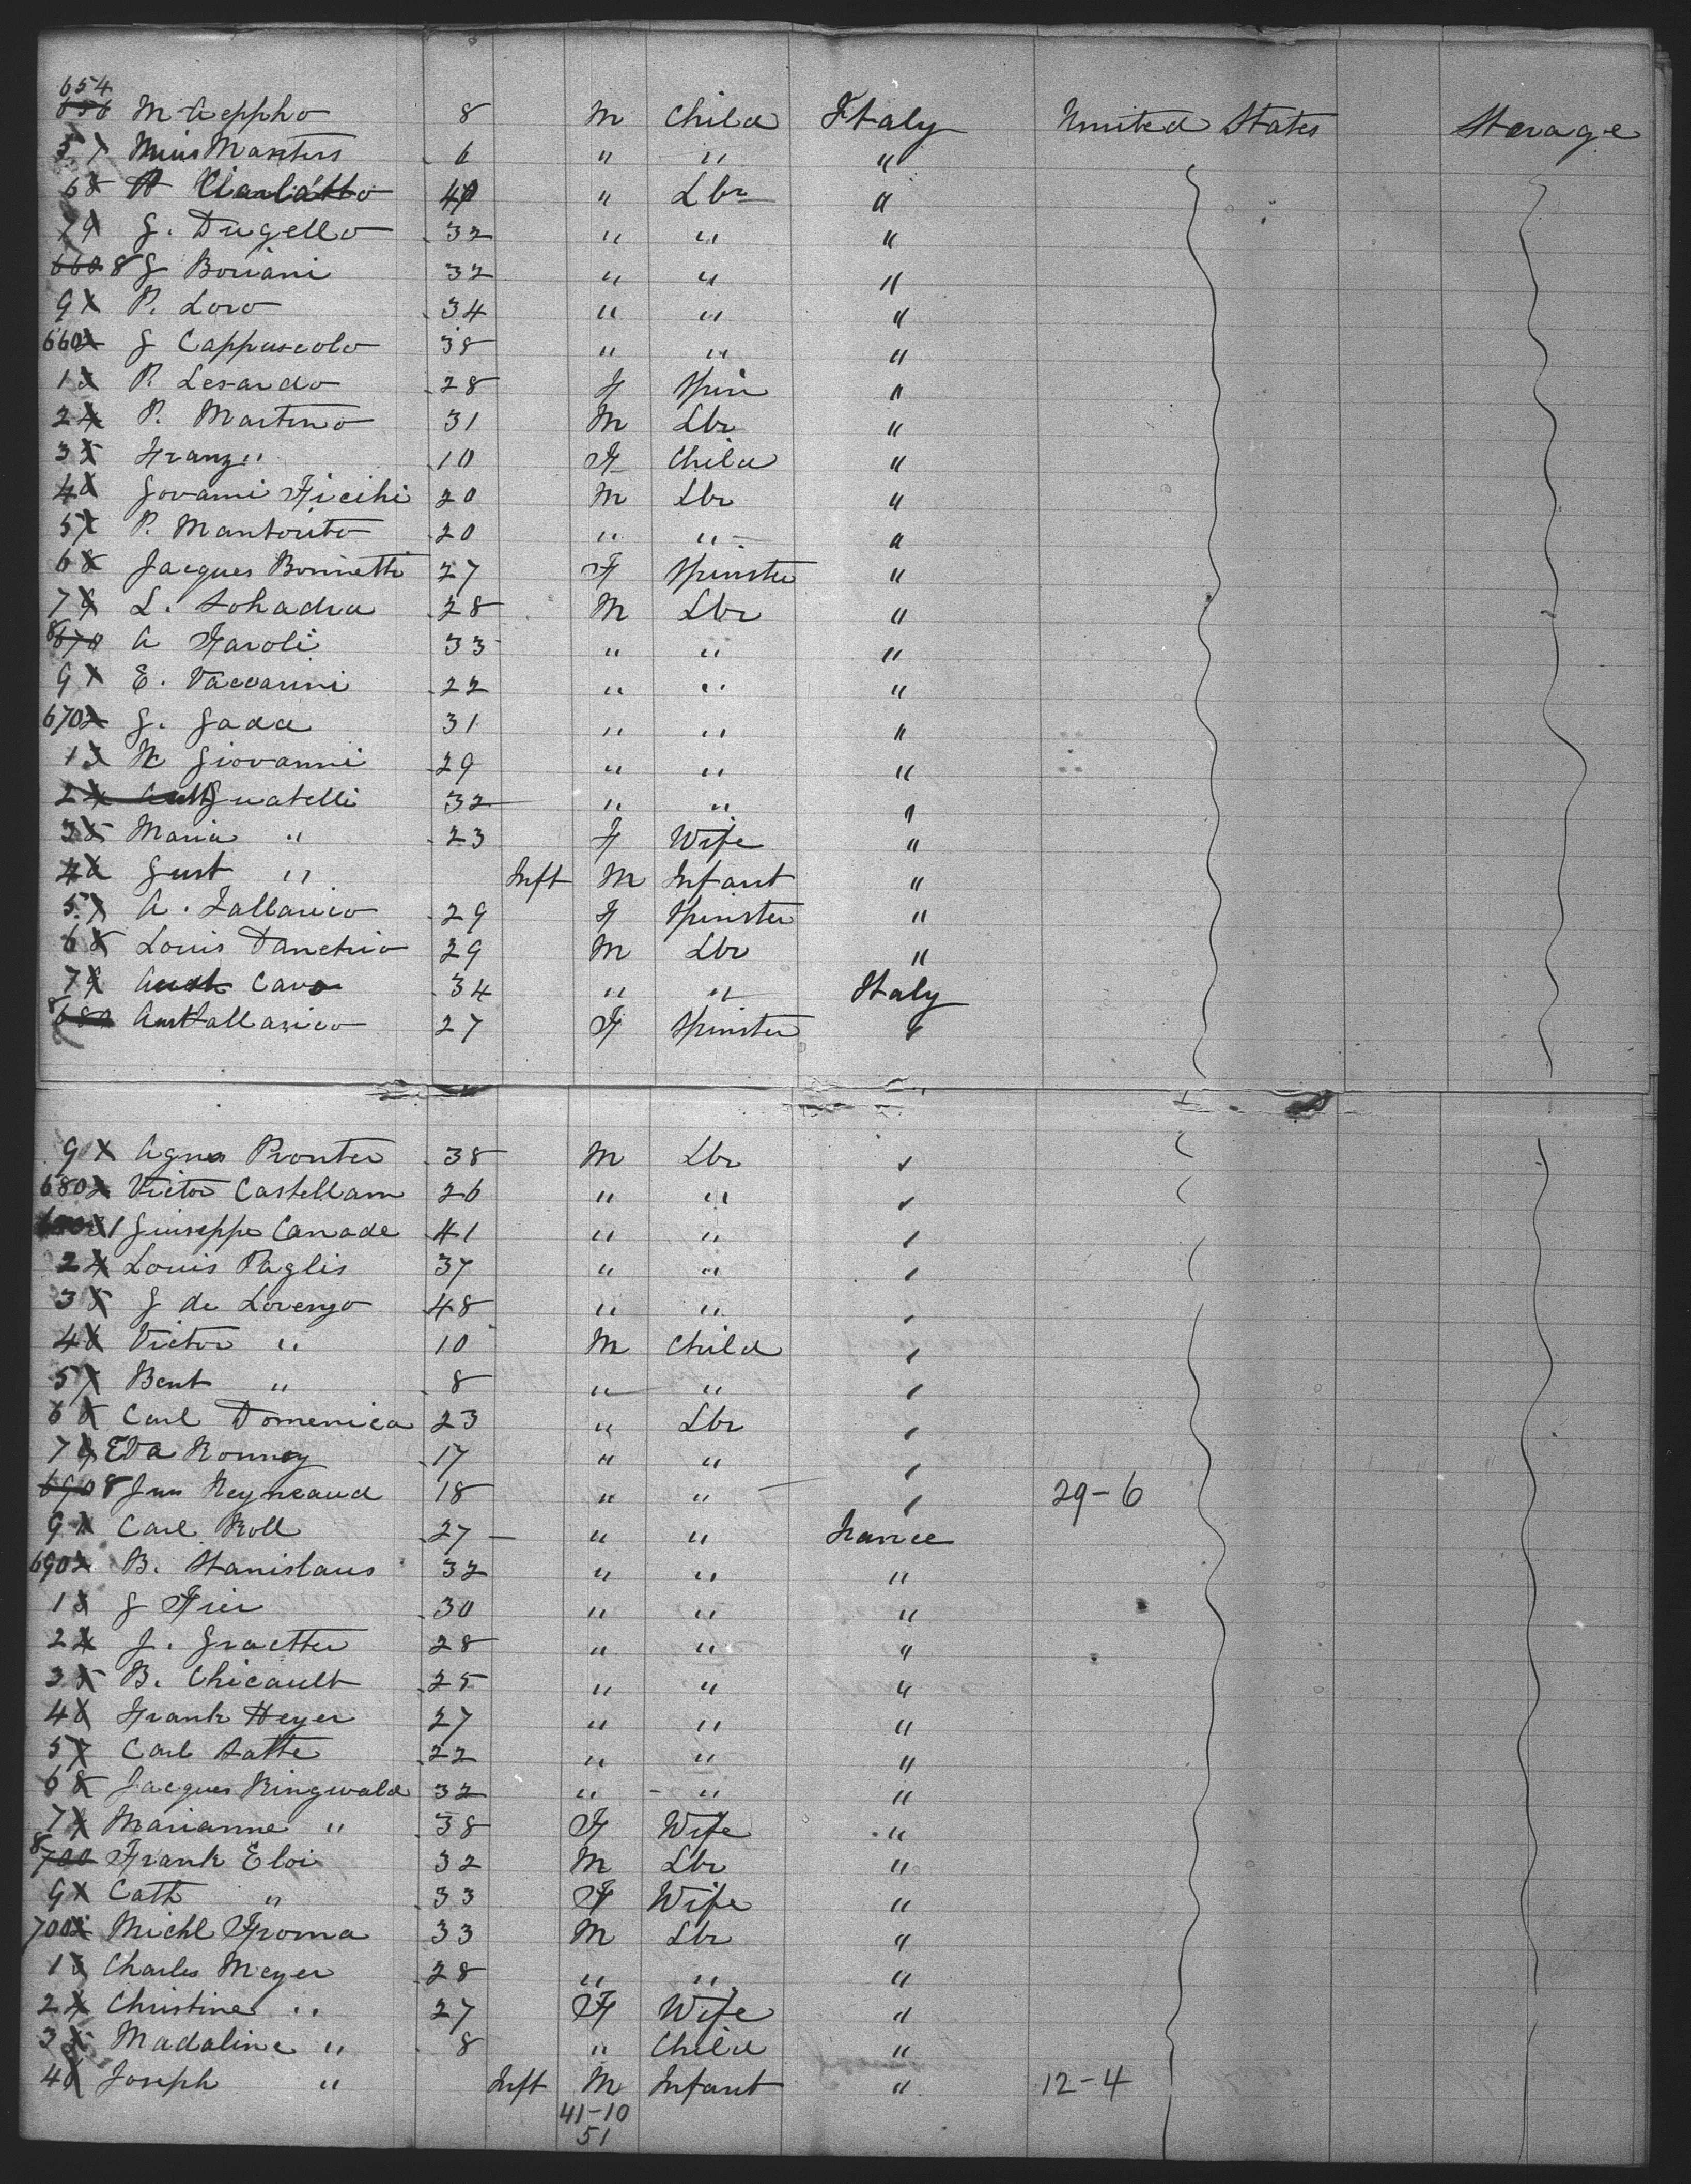 654
656 M Aeppho 8 M Child Italy United States Sterage
5 7 Masters 6 " " "
6 8 40 " Lbr "
7 9 G. Dugello 32 " " "
660 8 G Boriani 32 " " "
9 1 P. Loro 34 " " "
660 2 G Cappuscolo 38 " " "
1 3 P. Lesardo 28 F Spin "
2 4 P. Martino 31 M Lbr "
3 5 Franz " 10 F Child "
4 6 Govanni Ficihi 20 M Lbr "
5 7 P. Mantorito 20 " " "
6 8 Jacques Bonnetti 27 F Spinster "
7 9 L. Sohadra 28 M Lbr "
8 670 A Faroli 33 " " "
9 1 E. Vaccarini 22 " " "
670 2 G. Gada 31 " " "
1 3 N Giovanni 29 " " "
2 4 Guatelli 32 " " "
3 5 Maria " 23 F Wife "
4 6 Gust " Inft M Infant "
5 7 A. Zallarico 29 F Spinster "
6 8 Louis Danchio 29 M Lbr "
7 9 Cava 34 " " Italy
8 680 Ant Zallarico 27 F Spinster "
9 1 Agnes Pronter 38 M Lbr "
680 2 Victor Castellam 26 " " "
1 Guiseppe Canade 41 " " "
2 4 Louis Paglis 37 " " "
3 5 G de Lorenzo 48 " " "
4 6 Victor " 10 M Child "
5 7 Bent " 8 " " "
6 8 Carl Domenica 23 " Lbr "
7 9 Eda Ronney 17 " " "
690 8 Jnn Reyneaud 18 " " " 29-6
9 1 Carl Roll 27 " " France
690 2 B. Stanislaus 32 " " "
1 3 G Frei 30 " " "
2 4 J. Graetter 28 " " "
3 5 B. Chicault 25 " " "
4 6 Frank Heyer 27 " " "
5 7 Carl Satte 22 " " "
6 8 Jacques Ringwald 32 " " "
7 9 Marianne " 38 F Wife "
8 700 Frank Eloi 32 M Lbr "
9 1 Cath " 33 F Wife "
700 2 Michl Froma 33 M Lbr "
1 3 Charles Meyer 28 " " "
2 4 Christine " 27 F Wife "
3 5 Madaline " 8 " Child "
4 6 Joseph " Inft M Infant " 12-4
41-10
51